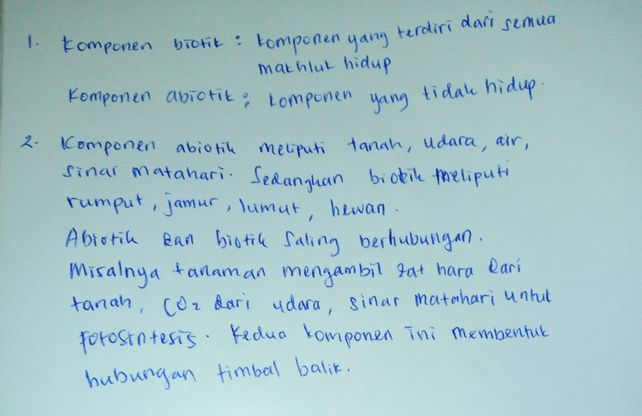 1. Komponen biotik : komponen yang terdiri dari semua
makhluk hidup
Komponen abiotik : komponen yang tidak hidup.
2. Komponen abiotik meliputi tanah, udara, air,
sinar matahari. Sedangkan biotik meliputi
rumput, jamur, lumut, hewan.
Abiotik dan biotik saling berhubungan.
Misalnya tanaman mengambil zat hara dari
tanah, CO2 dari udara, sinar matahari untuk
fotosintesis. Kedua komponen ini membentuk
hubungan timbal balik.